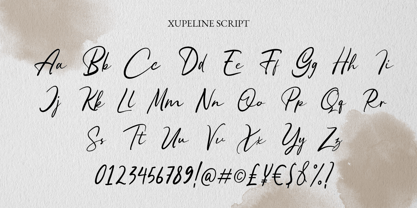 XUPELINE SCRIPT
Aa Bb Cc Dd Ee Ff Gg Hh Ii
Jj Kk Ll Mm Nn Oo Pp Qq Rr
Ss Tt Uu Vv Xx Yy Zz
0123456789!@#©£¥€$&%?